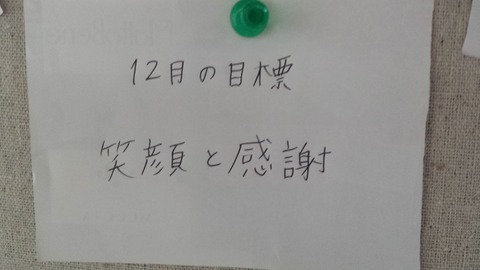 12月の目標
笑顔と感謝